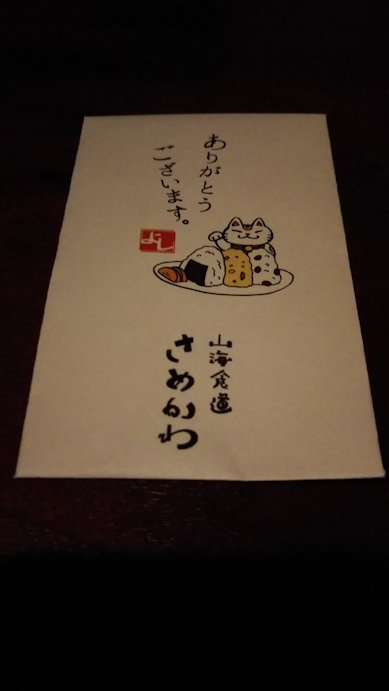 ありがとう
ございます。
よし
山海食道
さめかわ